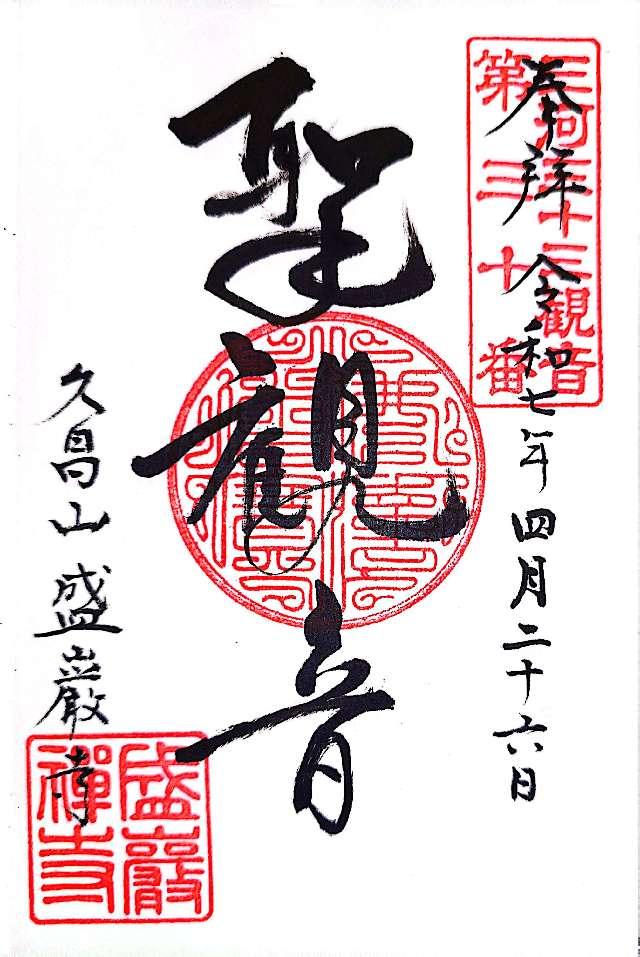 奉拝 令和七年四月二十六日
三河三十三観音
第三十番
聖観音
久昌山 盛巖寺
盛巖
禅寺